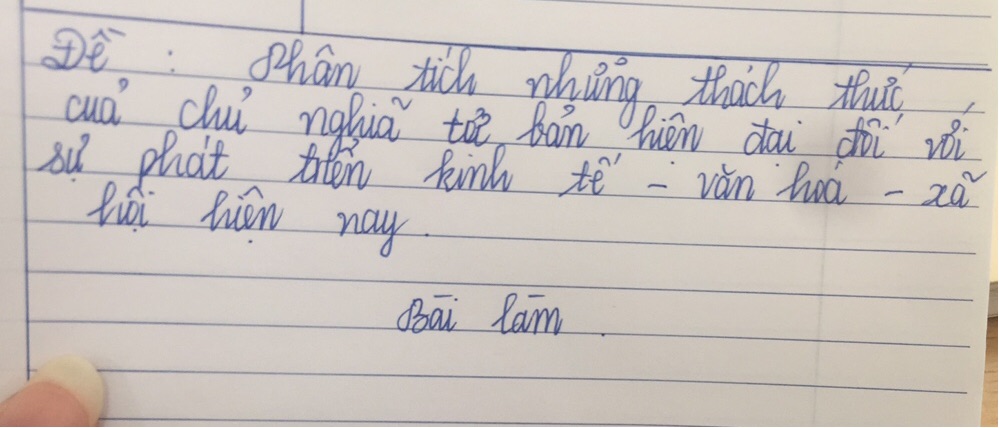 Đề : Phân tích những thách thức
của chủ nghĩa tư bản hiện đại đối với
sự phát triển kinh tế - văn hoá - xã
hội hiện nay.
Bài làm.